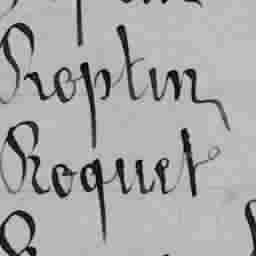 Roptin
Roquet